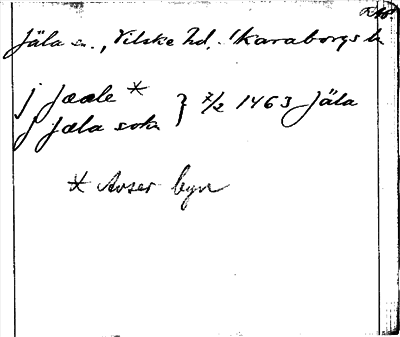 Jäla sn., Vilske hd., Skaraborgs l.
j Jæale *
j Jæla sokn } 7/2 1463 Jäla
* Avser byn